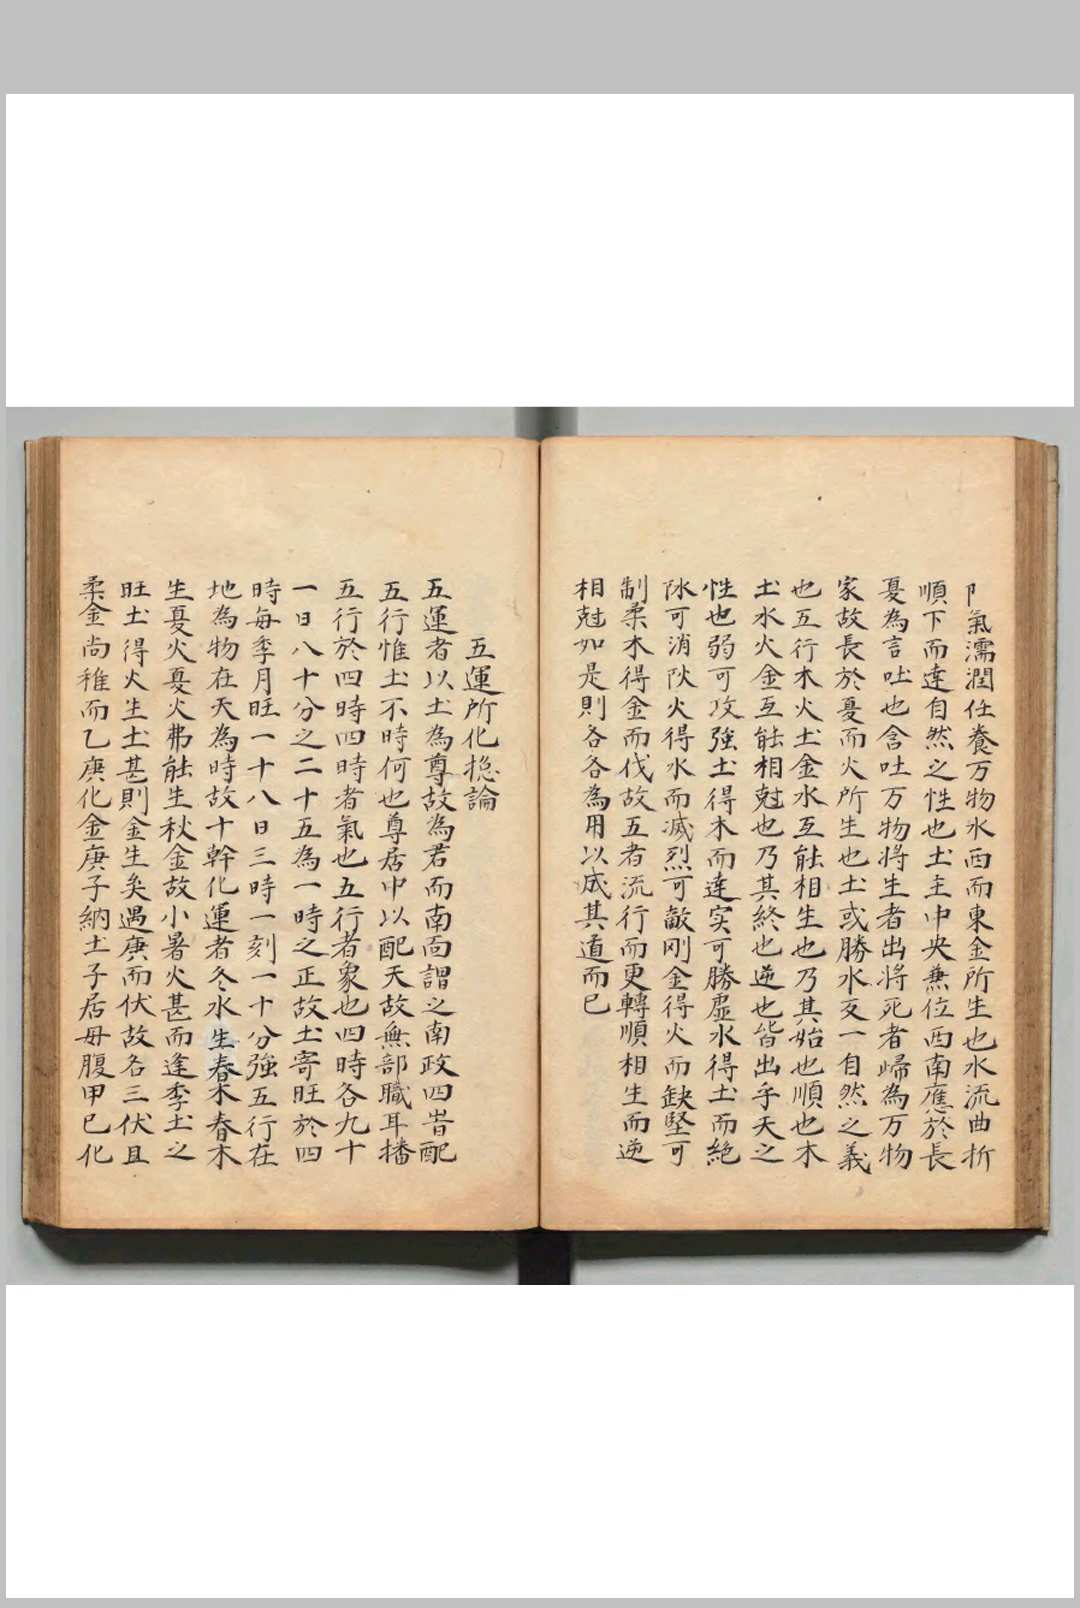 阝氣濡潤任養万物水西而東金所生也水流曲折
順下而達自然之性也土主中央兼位西南應於長
夏為言吐也含吐万物將生者出將死者歸為万物
家故長於夏而火所生也土或勝水亥一自然之義
也五行木火土金水互能相生也乃其始也順也木
土水火金互能相尅也乃其終也逆也皆出乎天之
性也弱可攻強土得木而達实可勝虛水得土而絕
陎可消阦火得水而滅烈可敵刚金得火而缺堅可
制柔木得金而伐故五者流行而更轉順相生而逆
相尅如是則各各為用以成其道而已
五運所化捴論
五運者以土為尊故為君而南面謂之南政四旹配
五行惟土不時何也尊居中以配天故無部職耳播
五行於四時四時者氣也五行者象也四時各九十
一日八十分之二十五為一時之正故土寄旺於四
時每季月旺一十八日三時一刻一十分強五行在
地為物在天為時故十幹化運者冬水生春木春木
生夏火夏火弗能生秋金故小暑火甚而逢季土之
旺土得火生土甚則金生矣遇庚而伏故名三伏且
柔金尚稚而乙庚化金庚子納土子居母腹甲巳化